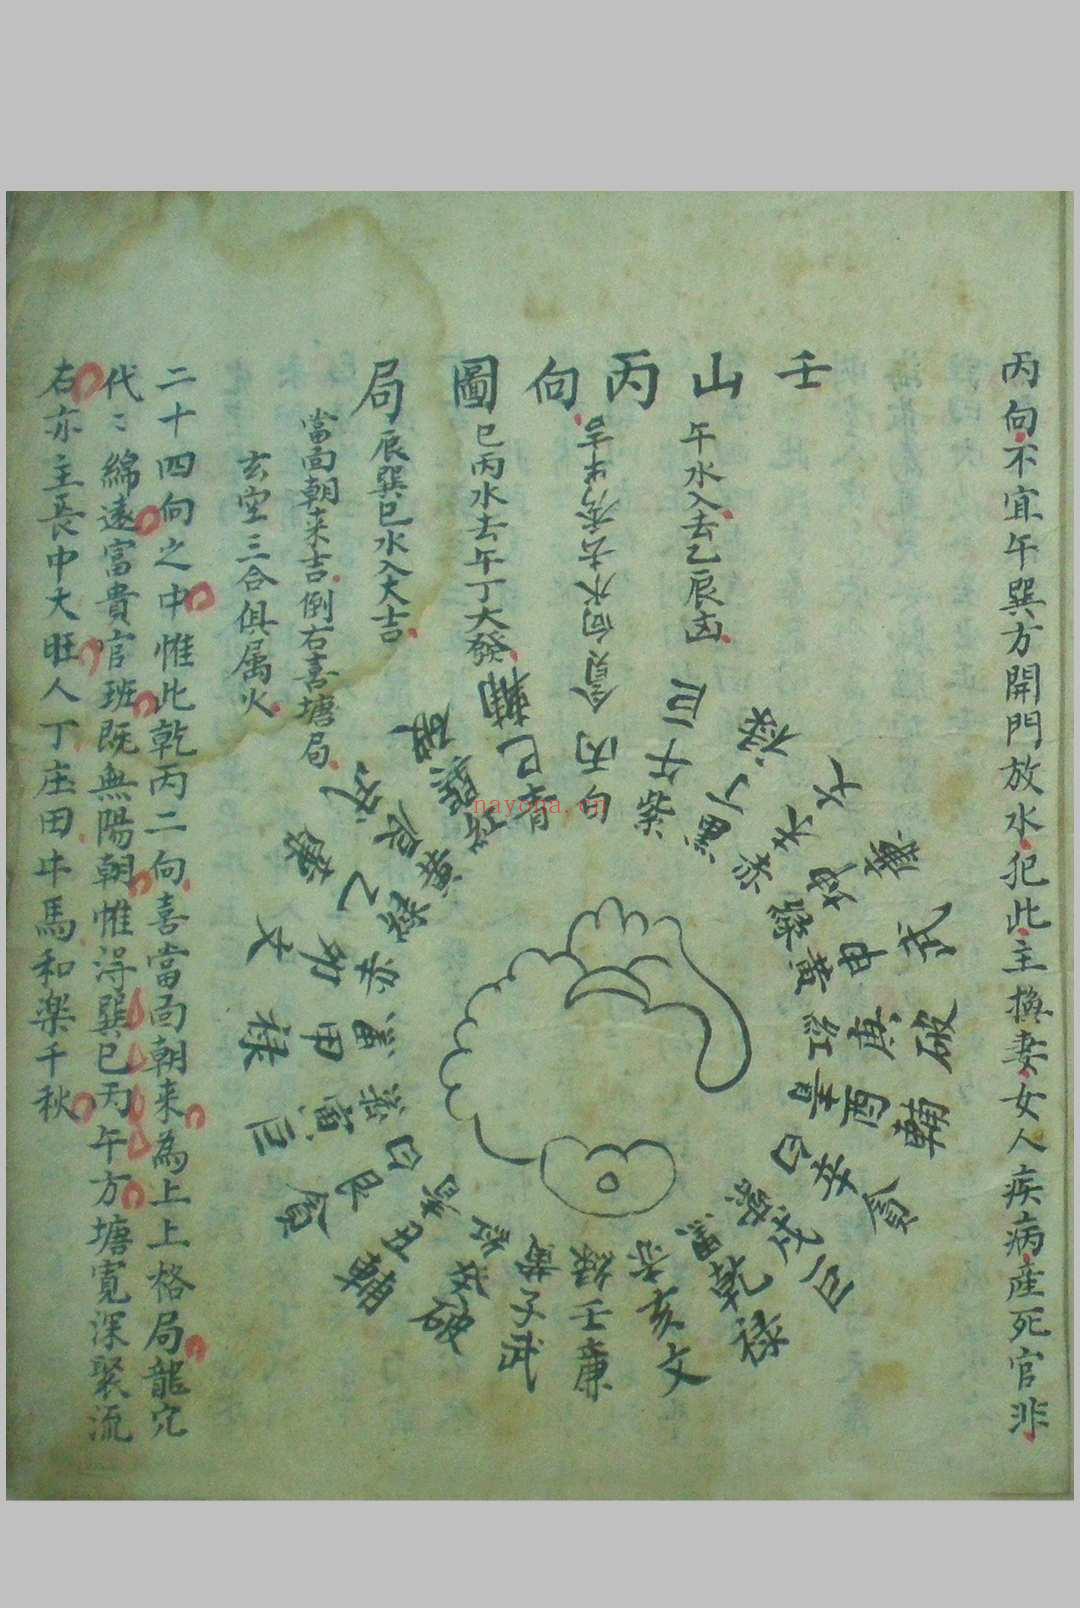 丙向不宜午巽方開門放水犯此主換妻女人疾病產死官非
壬山丙向圖局
午水入去乙辰凶
貪向水去
巳丙水去午丁大發
辰巽巳水入大吉
當面朝来吉倒右喜塘局
玄空三合俱属火
二十四向之中惟此乾丙二向喜當面朝来為上上格局龍穴
代〻綿遠富貴官班既無陽朝惟淂巽巳丙午方塘寬深聚流
右亦主長中大旺人丁庄田牛馬和楽千秋
白丙
紫午巨
黑丁禄
赤未文
綠坤廉
黄申武
紅庚破
星酉輔
白辛貪
紫戌巨
黑乾禄
赤亥文
綠壬廉
黄子武
紅癸破
丑輔
白艮貪
紫寅巨
黑甲禄
赤卯文
綠乙廉
黄辰武
紅巽破
青巳輔
nayona.cn